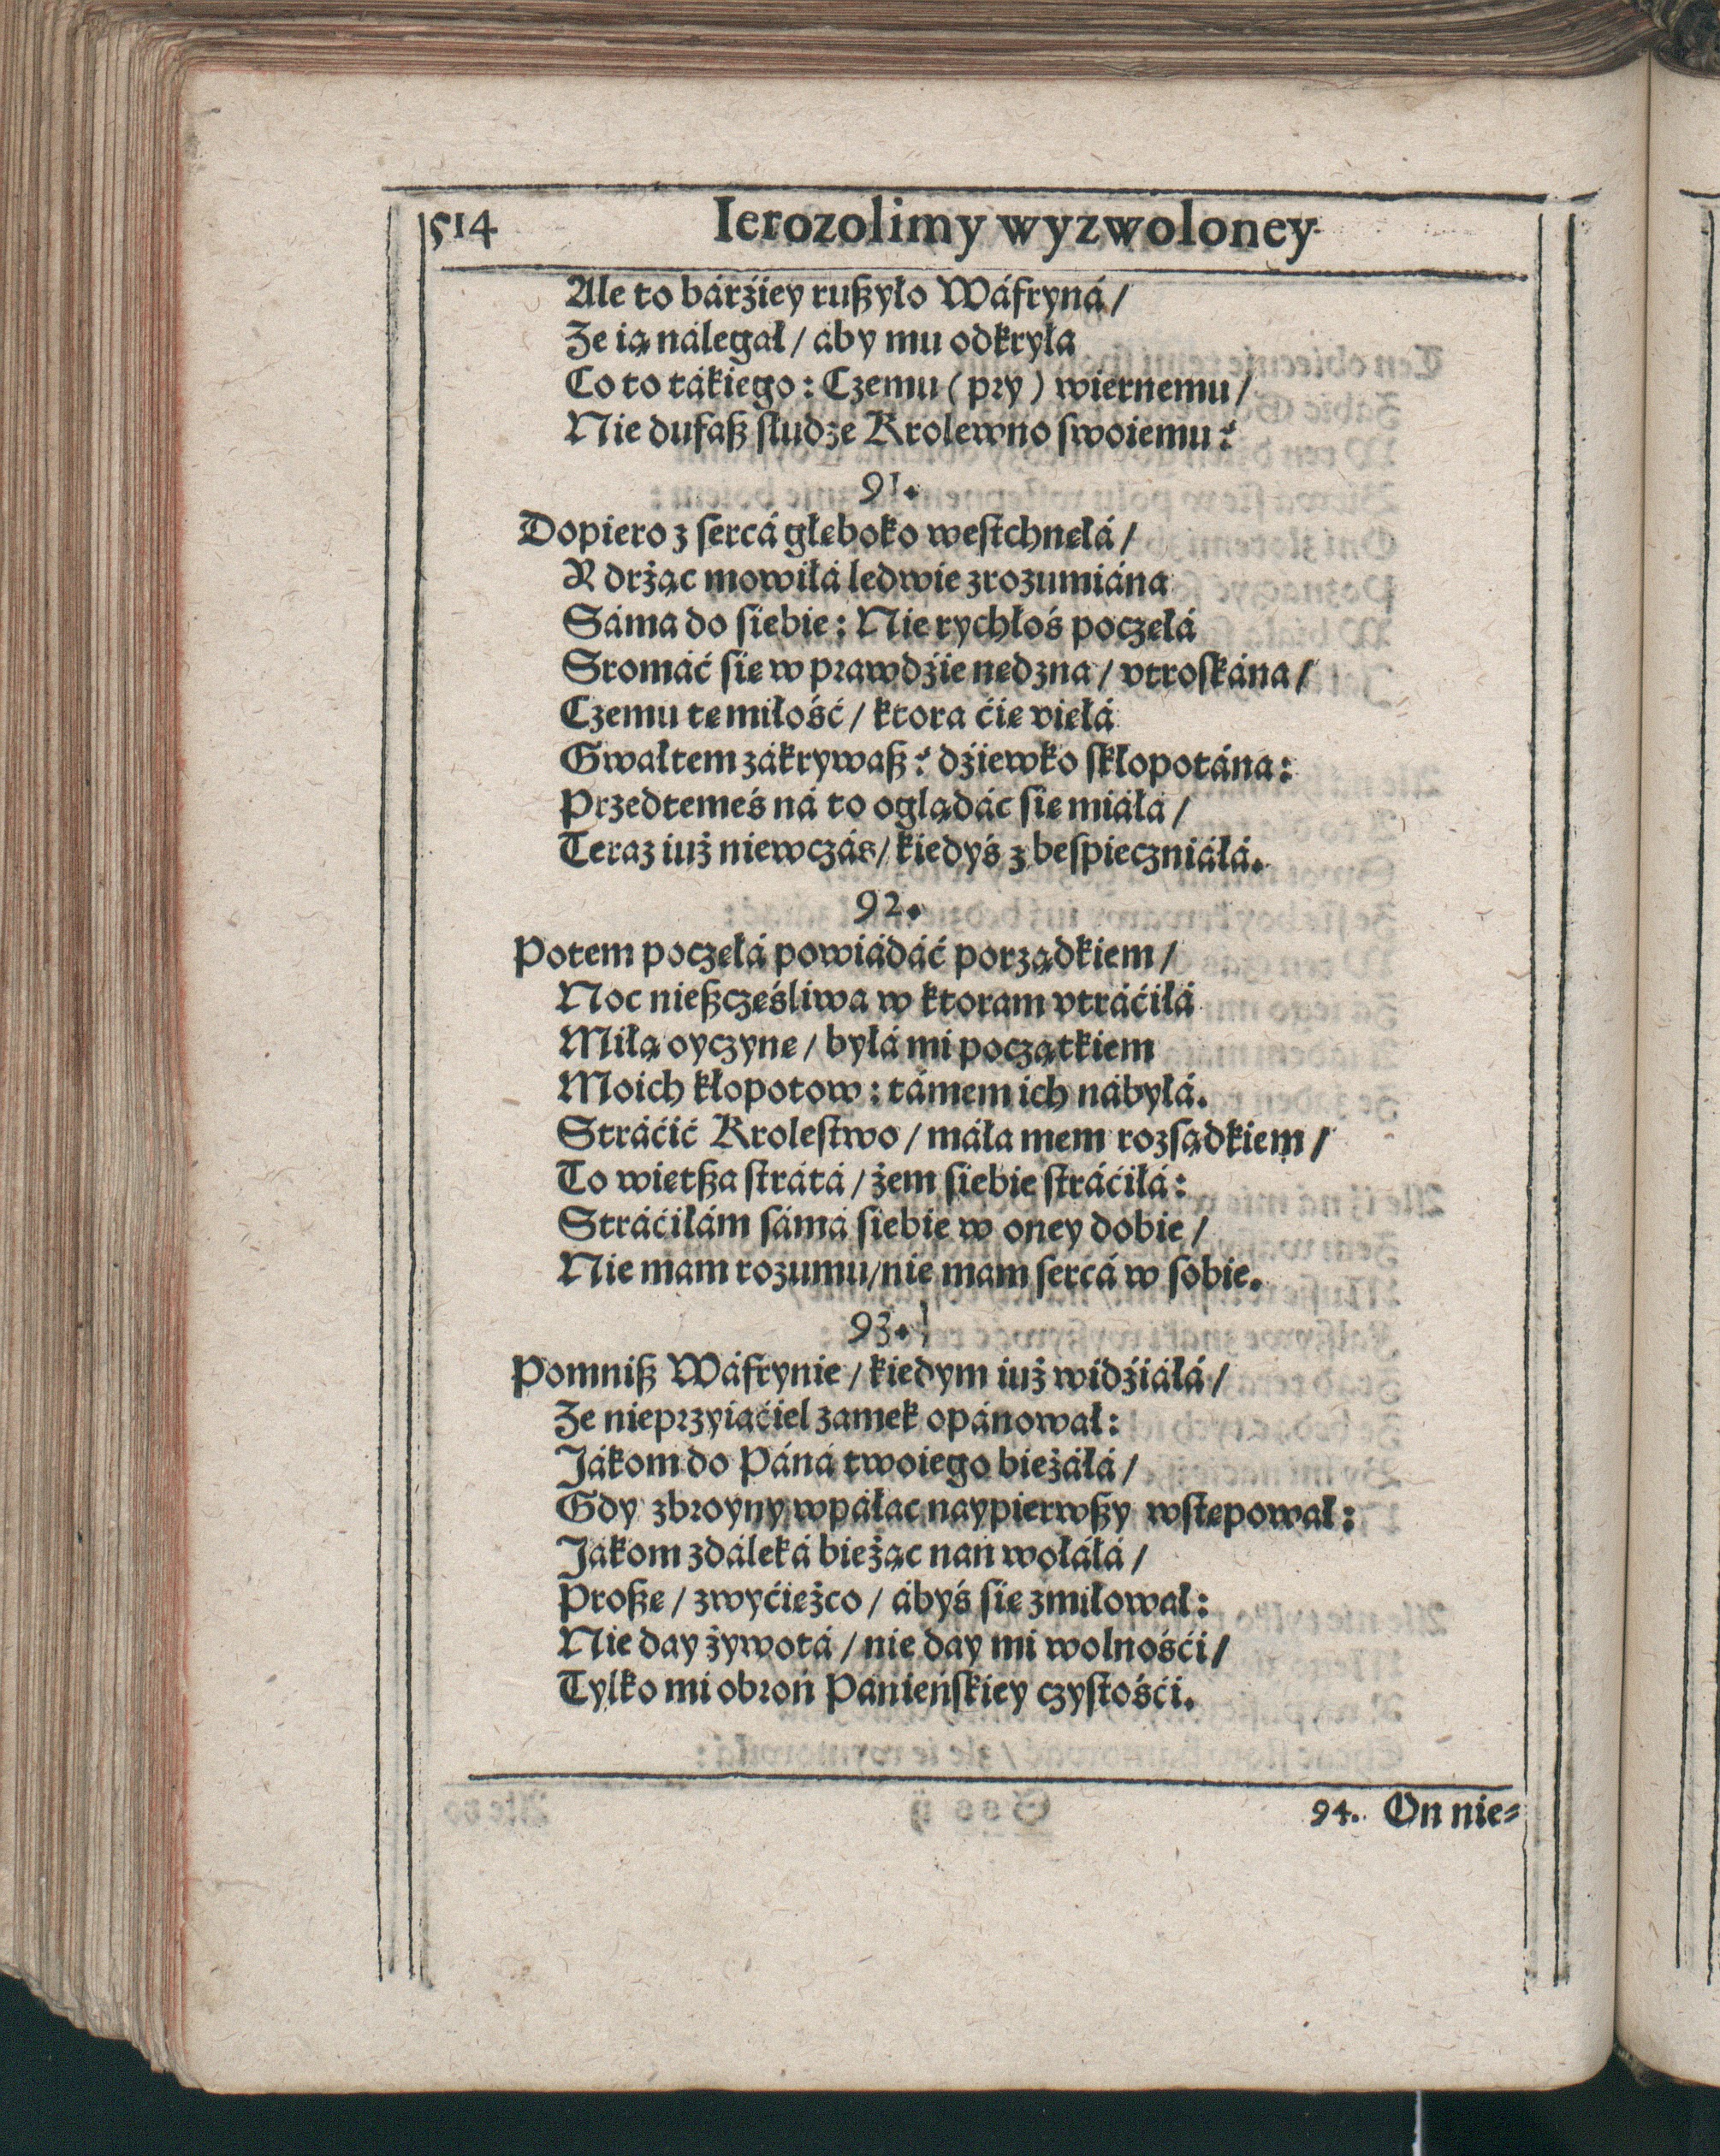 514 Ierozolimy wyzwoloney
Ale to bárźiey rußyło Wáfryná/
Że ią nálegał/ áby mu odkryła
Co to tákiego: Czemu (pry) wiernemu/
Nie dufaß słudze Krolewno swoiemu?
91.
Dopiero z sercá głęboko westchnęłá/
Y drżąc mowiłá ledwie zrozumiána
Sámá do siebie: Nie rychłoś poczęłá
Sromáć się w prawdźie nędzna/ vtroskána/
Czemu tę miłość/ ktora ćię vięłá
Gwałtem zákrywaß? dźiewko skłopotána:
Przedtemeś ná to oglądáć się miáłá/
Teraz iuż niewczás/ kiedyś zbespieczniáłá.
92.
Potem poczęłá powiádáć porządkiem/
Noc nießczęśliwa w ktoram vtráćiłá
Miłą oyczyznę/ byłá mi początkiem
Moich kłopotow: támem ich nábyłá.
Stráćić Krolestwo/ máła mem rozsądkiem/
To większa strátá/ żem siebie stráćiłá:
Stráćiłám sámá siebie w oney dobie/
Nie mam rozumu/ nie mam sercá w sobie.
93.
Pomniß Wáfrynie/ kiedym iuż widźiáłá/
Że nieprzyiaćiel zamek opánował:
Jákom do Páná twoiego bieżáłá/
Gdy zbroyny w páłac naypierwßy wstępował:
Jákom zdáleká bieżąc nań wołáłá/
Proßę/ zwyćiężco/ ábyś się zmiłował:
Nie day żywotá/ nie day mi wolnośći/
Tylko mi obroń Pánieńskiey czystośći.
94. On nie-